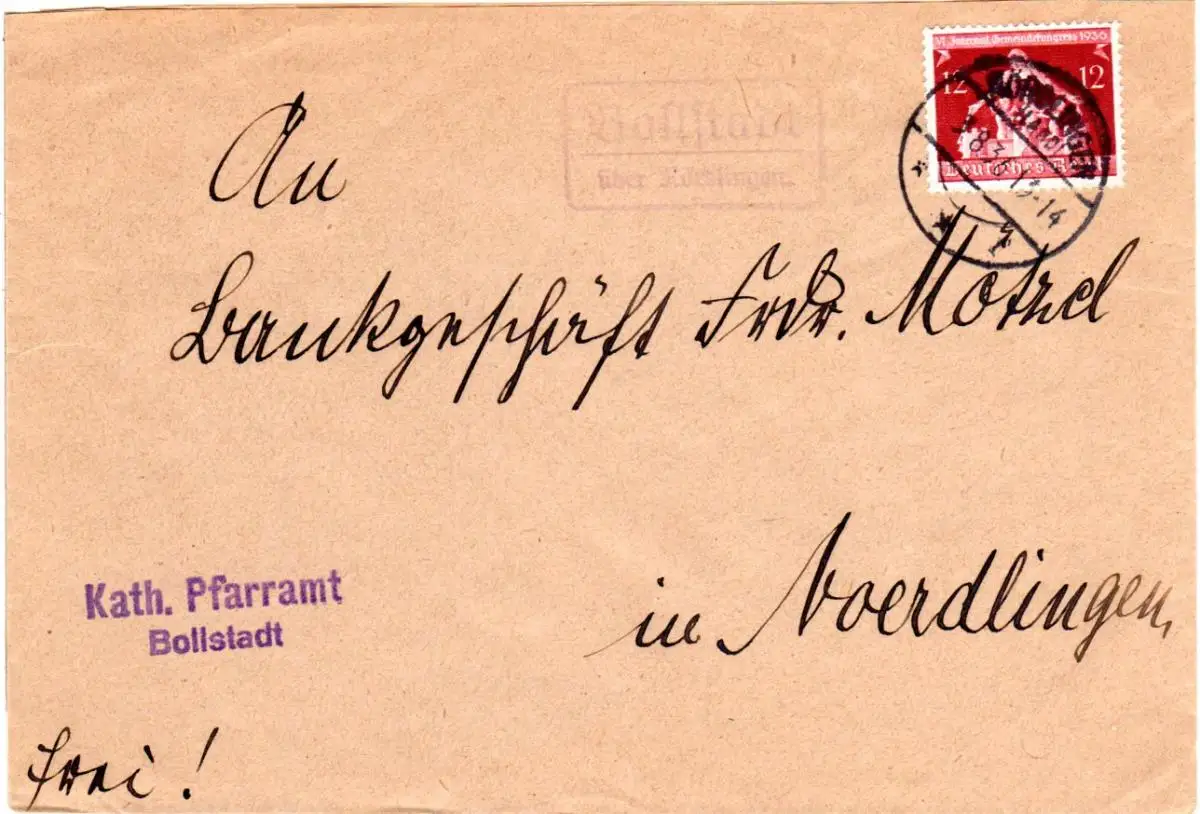 VI. Internat. Gemeindekongress 1936
12 12
Deutsches
NÖRDLINGEN
8.36.
-14
Bollstadt
über Nördlingen.
An
Bankgeschäft Frdr. Motzel
in Noerdlingen,
Kath. Pfarramt
Bollstadt
frei!